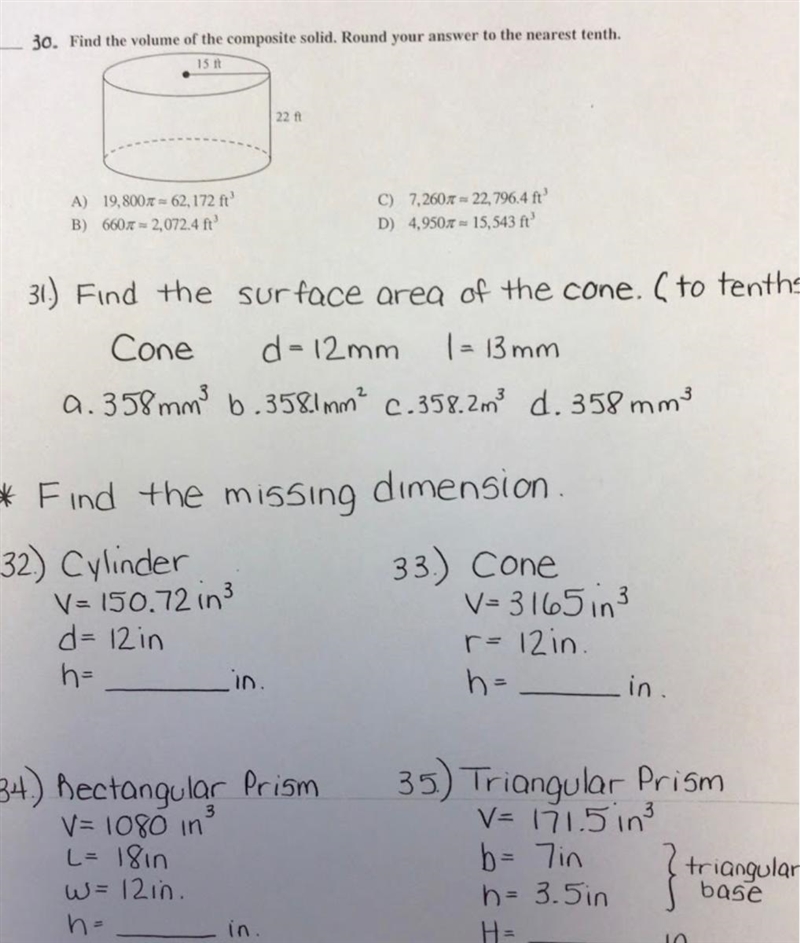 30. Find the volume of the composite solid. Round your answer to the nearest tenth.
15 ft
22 ft
A) 19,800π ≈ 62,172 ft³
C) 7,260π ≈ 22,796.4 ft³
B) 660π ≈ 2,072.4 ft³
D) 4,950π ≈ 15,543 ft³
31.) Find the surface area of the cone. (to tenths
Cone d = 12mm l = 13mm
a. 358mm³ b. 358.1mm² c. 358.2m³ d. 358mm³
* Find the missing dimension.
32.) Cylinder
V= 150.72 in³
d= 12in
h= ______ in.
33.) Cone
V= 3165 in³
r= 12in.
h= ______ in.
34.) Rectangular Prism
V= 1080 in³
L= 18in
w= 12in.
h= ______ in.
35.) Triangular Prism
V= 171.5 in³
b= 7in
h= 3.5in
} triangular
base
H= ______ in